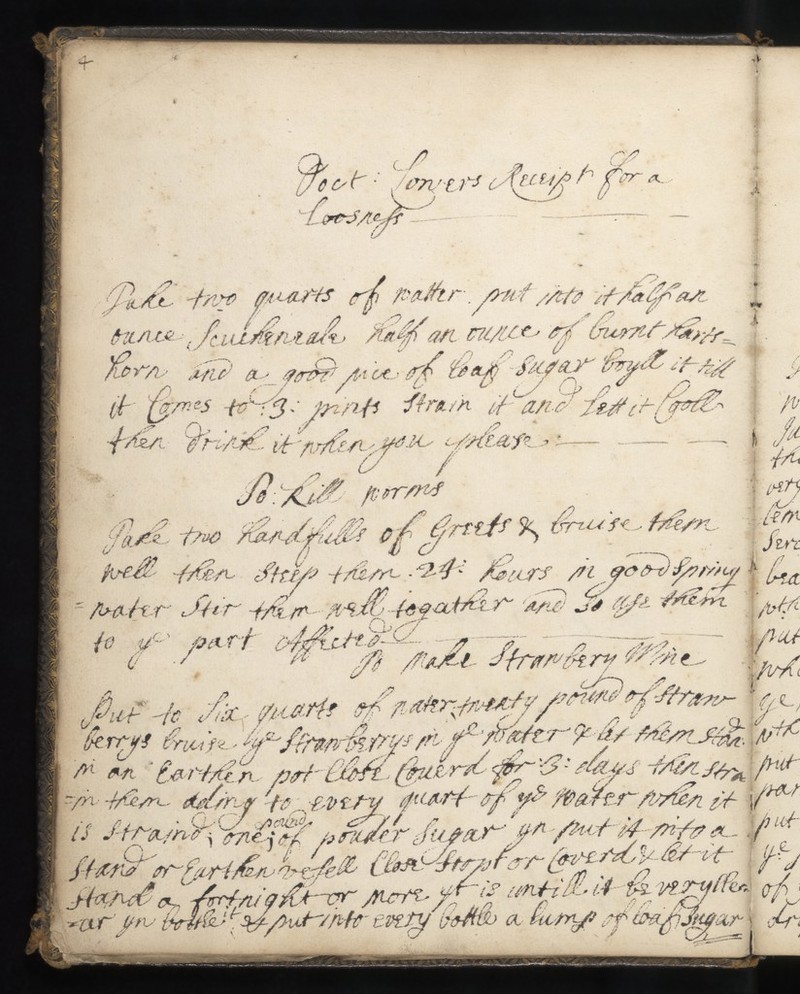 4
Doct: Lowers Receipt for a
Loosness
Take two quarts of watter put into it half an
ounce Scucheneale half an ounce of burnt harts=
horn and a good pice of loaf Sugar boyll it till
it Comes to :3: pints Strain it and Lett it Cooll
then drink it when you please
To: kill worms
Take two handfulls of Greets & bruise them
well then Steep them :24: hours in good Spring
=water Stir them well togather and so use them
to ye part affected
To Make Strawbery Wine
Put to Six quarts of water twenty pound of Straw
berrys bruise ye Strawberrys in ye water & let them Stan:d
in an Earthen pot Close Coverd for :3: days then stra
=in them ading to every quart of ye water when it
is straind; one pound of pouder Sugar yn put it into a
Stand or Earthen vesell Close Stopt or Coverd & let it
Stand a fortnight or more yt is untill it be very Cle=
=ar yn bottle it & put into every bottle a lump of loaf Sugar
w
Ju
the
very
lem
Sera
bea
wth
put
who
ye
wth
put
par
put
ye
of
dri